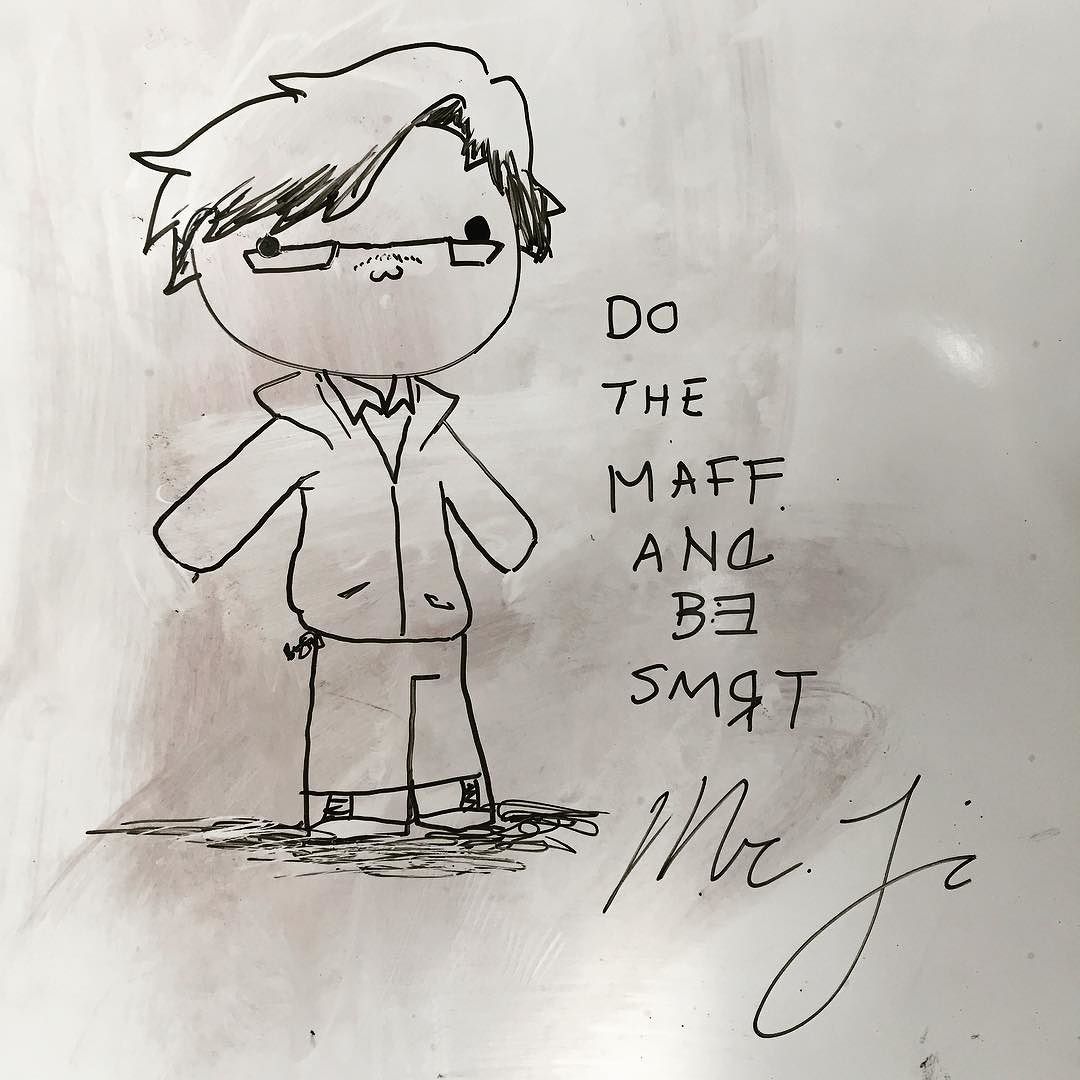 DO
THE
MAFF.
AND
BE
SMRT
Mr. Ji